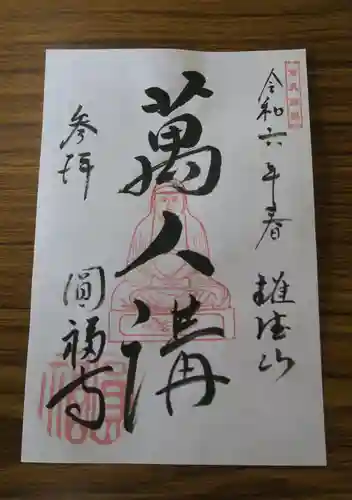 令和六年春
雄徳山
萬人講
参拝
圓福寺